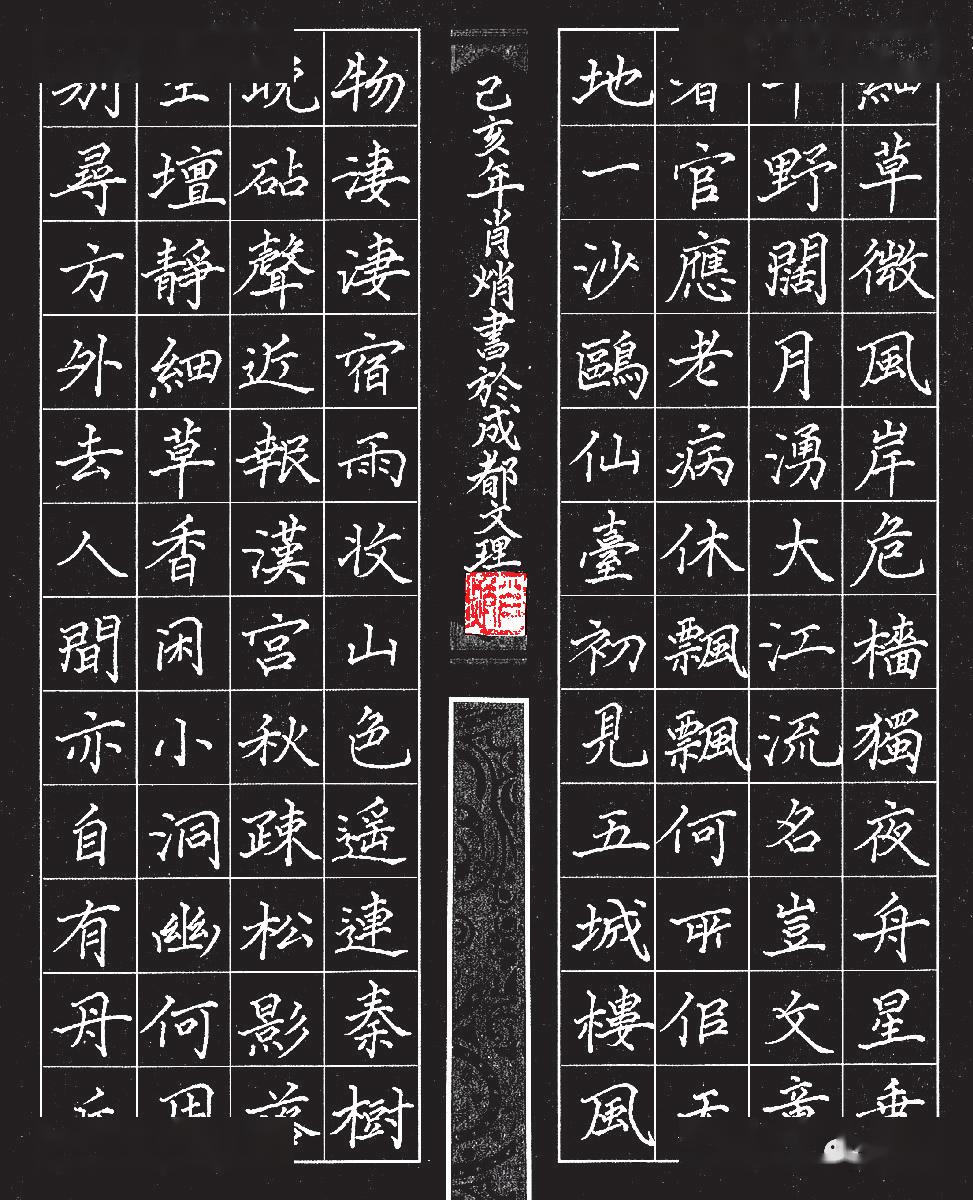 細草微風岸危檣獨夜舟星垂
平野闊月湧大江流名豈文章
著官應老病休飄飄何所佀天
地一沙鷗仙臺初見五城樓風
己亥年肖焇書於成都文理
物淒淒宿雨收山色遙連秦樹
晚砧聲近報漢宮秋疎松影落
空壇靜細草香闲小洞幽何用
別尋方外去人間亦自有丹丘